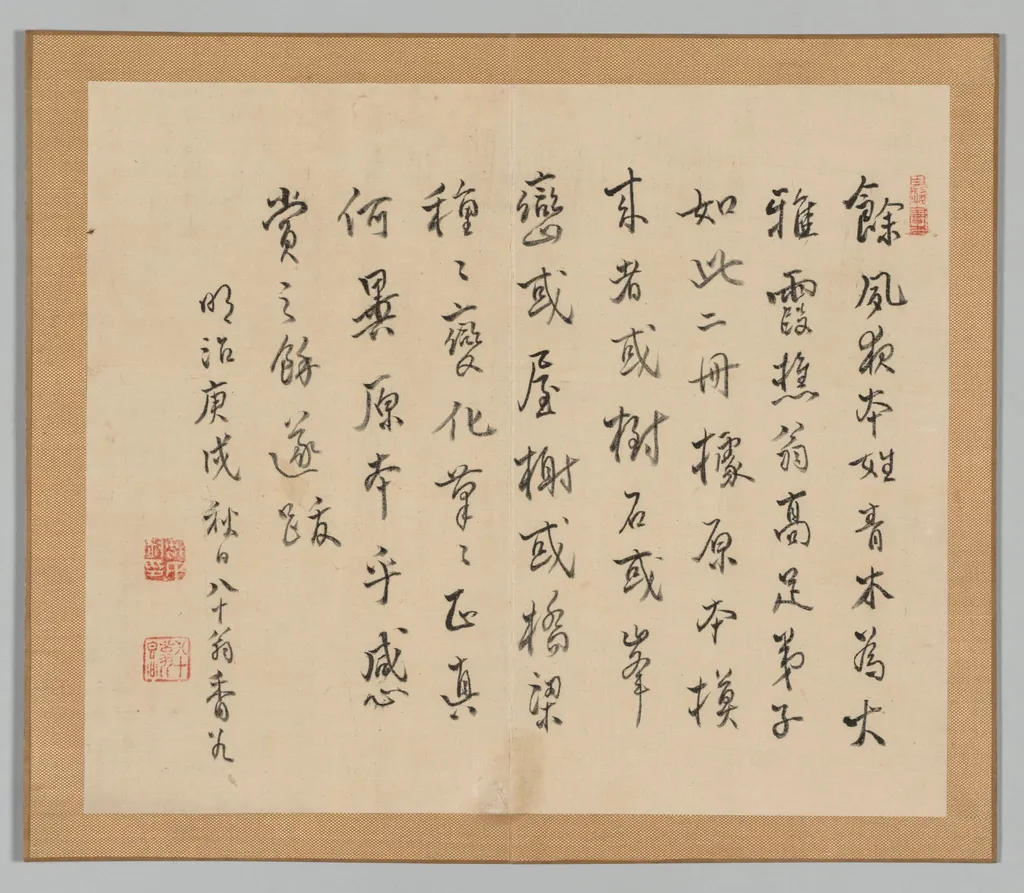 餘夙夜本姓青木為大
雅霞樵翁高足弟子
如此二冊據原本模
来者或樹或石或峯
巒或屋榭或橋梁
種〻變化筆〻正真
何異原本乎感
賞之餘遂跋
明治庚戌秋日八十翁香